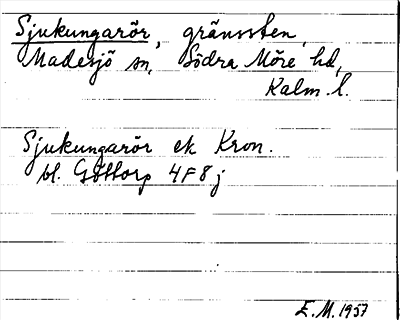 Sjukungarör, gränssten,
Madesjö sn, Södra Möre hd,
Kalm. l.
Sjukungarör ek Kron.
bl. Göttorp 4F8j
E.M. 1957